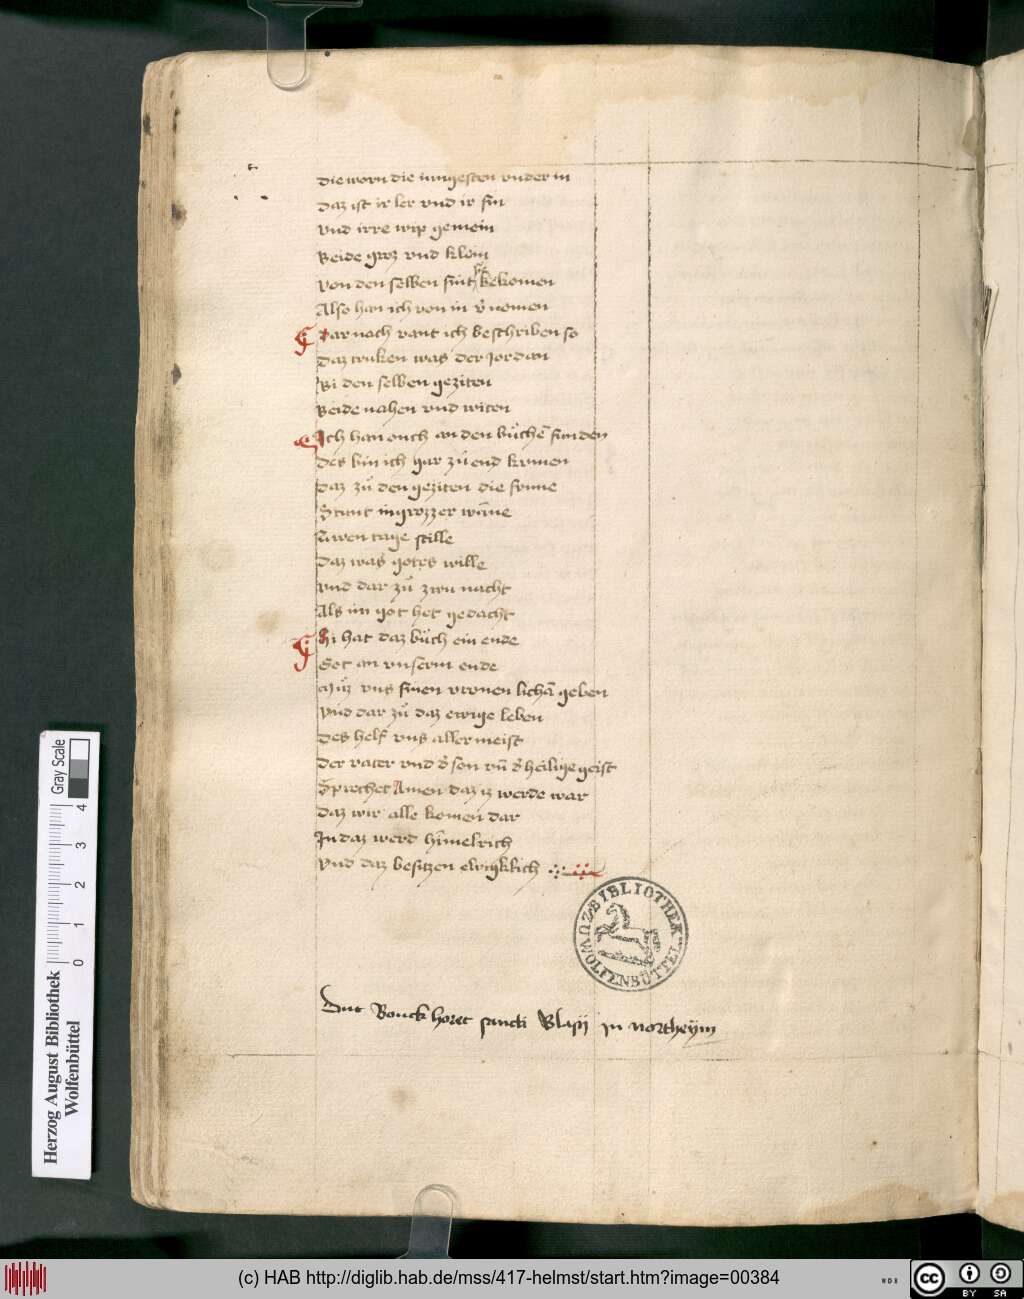 die worn die iungesten vnder in
daz ist ir ler vnd ir sin
vnd irre wip gemein
Beide groz vnd klein
von den selben sint bekomen
Also han ich von in v̓nomen
Dar nach vant ich beschriben so
daz truken was der Jordan
Bi den selben geziten
Beide nahen vnd witen
Ich han ouch an den buͤchē funden
des bin ich gar zuͦ end kumen
daz zuͦ den geziten die sunne
Stunt in grozzer wūne
zwen tage stille
daz was gotes wille
vnd dar zuͦ zwu nacht
Als im got het gedacht
Hi hat daz buͦch ein ende
Got an vnserm ende
Muͤz vns sinen vronen lichā geben
vnd dar zuͦ daz ewige leben
des helf vns aller meist
der vater vnd d̓ son vn̄ d̓ heilige geist
Sprechet Amen daz iz werde war
daz wir alle komen dar
In daz werd hīmelrich
vnd daz besitzen ewigklich
BIBLIOTHEK ZU WOLFENBÜTTEL
Dut Bouck horet sancti Blasij in northeym
Gray Scale
4
3
2
1
0
Herzog August Bibliothek
Wolfenbüttel
(c) HAB http://diglib.hab.de/mss/417-helmst/start.htm?image=00384
WDB
cc
BY SA